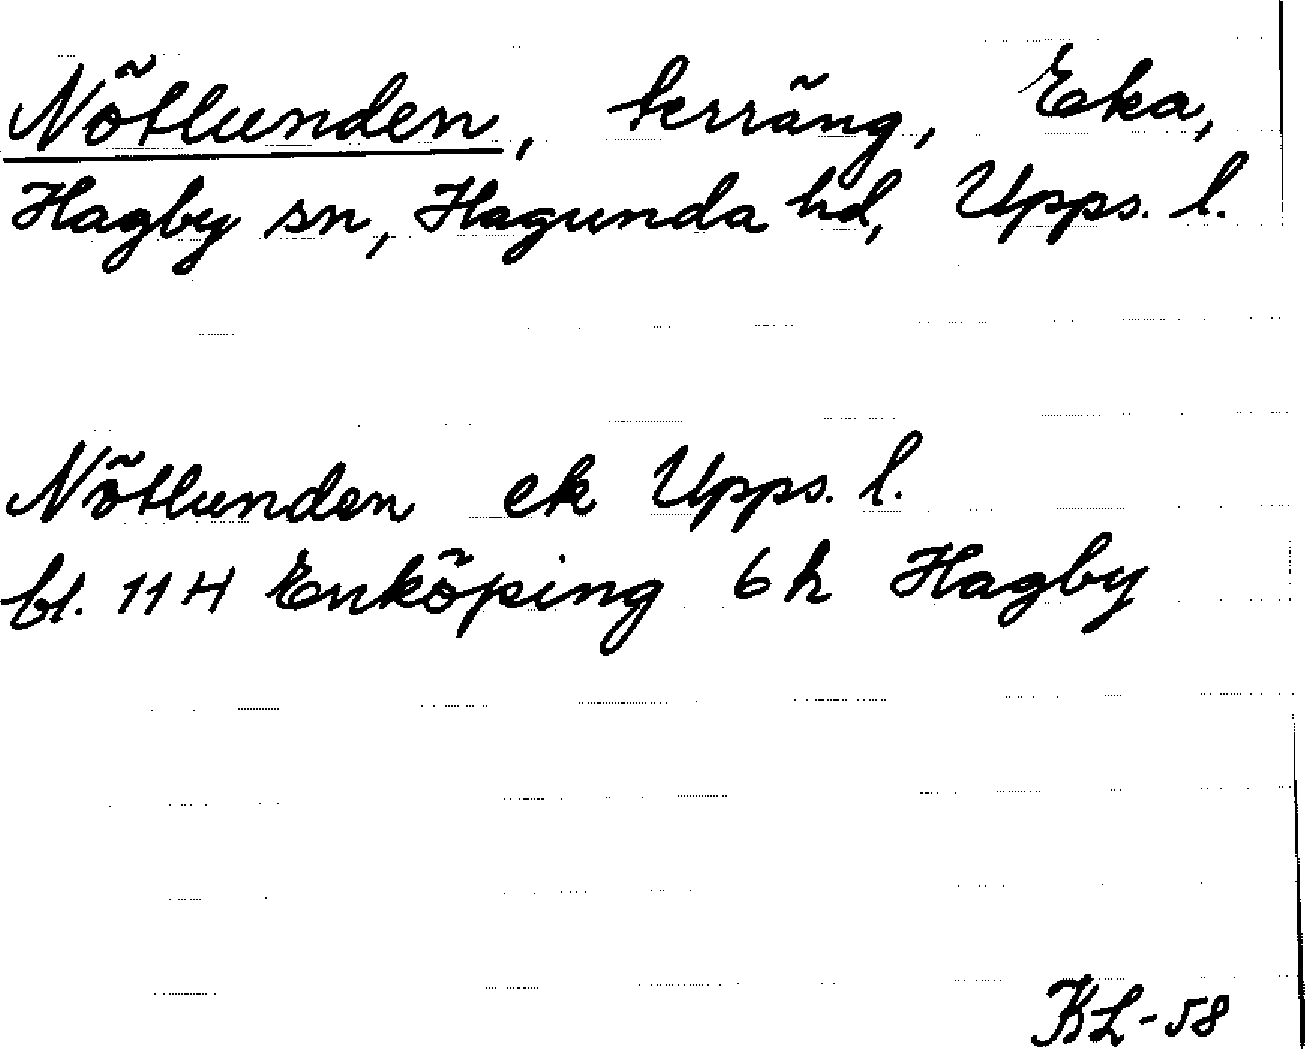 Nötlunden, terräng, Eka,
Hagby sn, Hagunda hd, Upps. l.
Nötlunden ek Upps. l.
bl. 11 H Enköping 6 h Hagby
KL-58